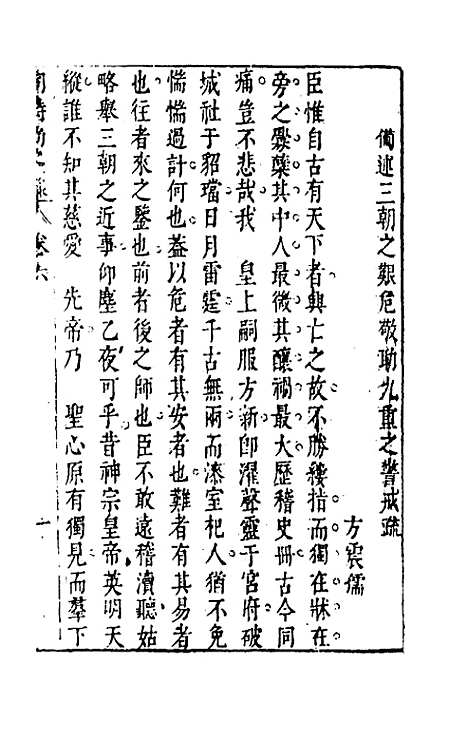 備述三朝之艱危敬助九重之警戒疏
方震孺
臣惟自古有天下者興亡之故不勝縷指而獨在牀在
旁之釁孽其中人最微其釀禍最大歷稽史冊古今同
痛豈不悲哉我　皇上嗣服方新卽濯聲靈于宮府破
城社于貂璫日月雷霆千古無兩而漆室杞人猶不免
惴惴過計何也葢以危者有其安者也難者有其易者
也往者來之鑒也前者後之師也臣不敢遠稽瀆聽姑
略舉三朝之近事仰塵乙夜可乎昔神宗皇帝英明天
縱誰不知其慈愛　先帝乃　聖心原有獨見而羣下
卷六
一